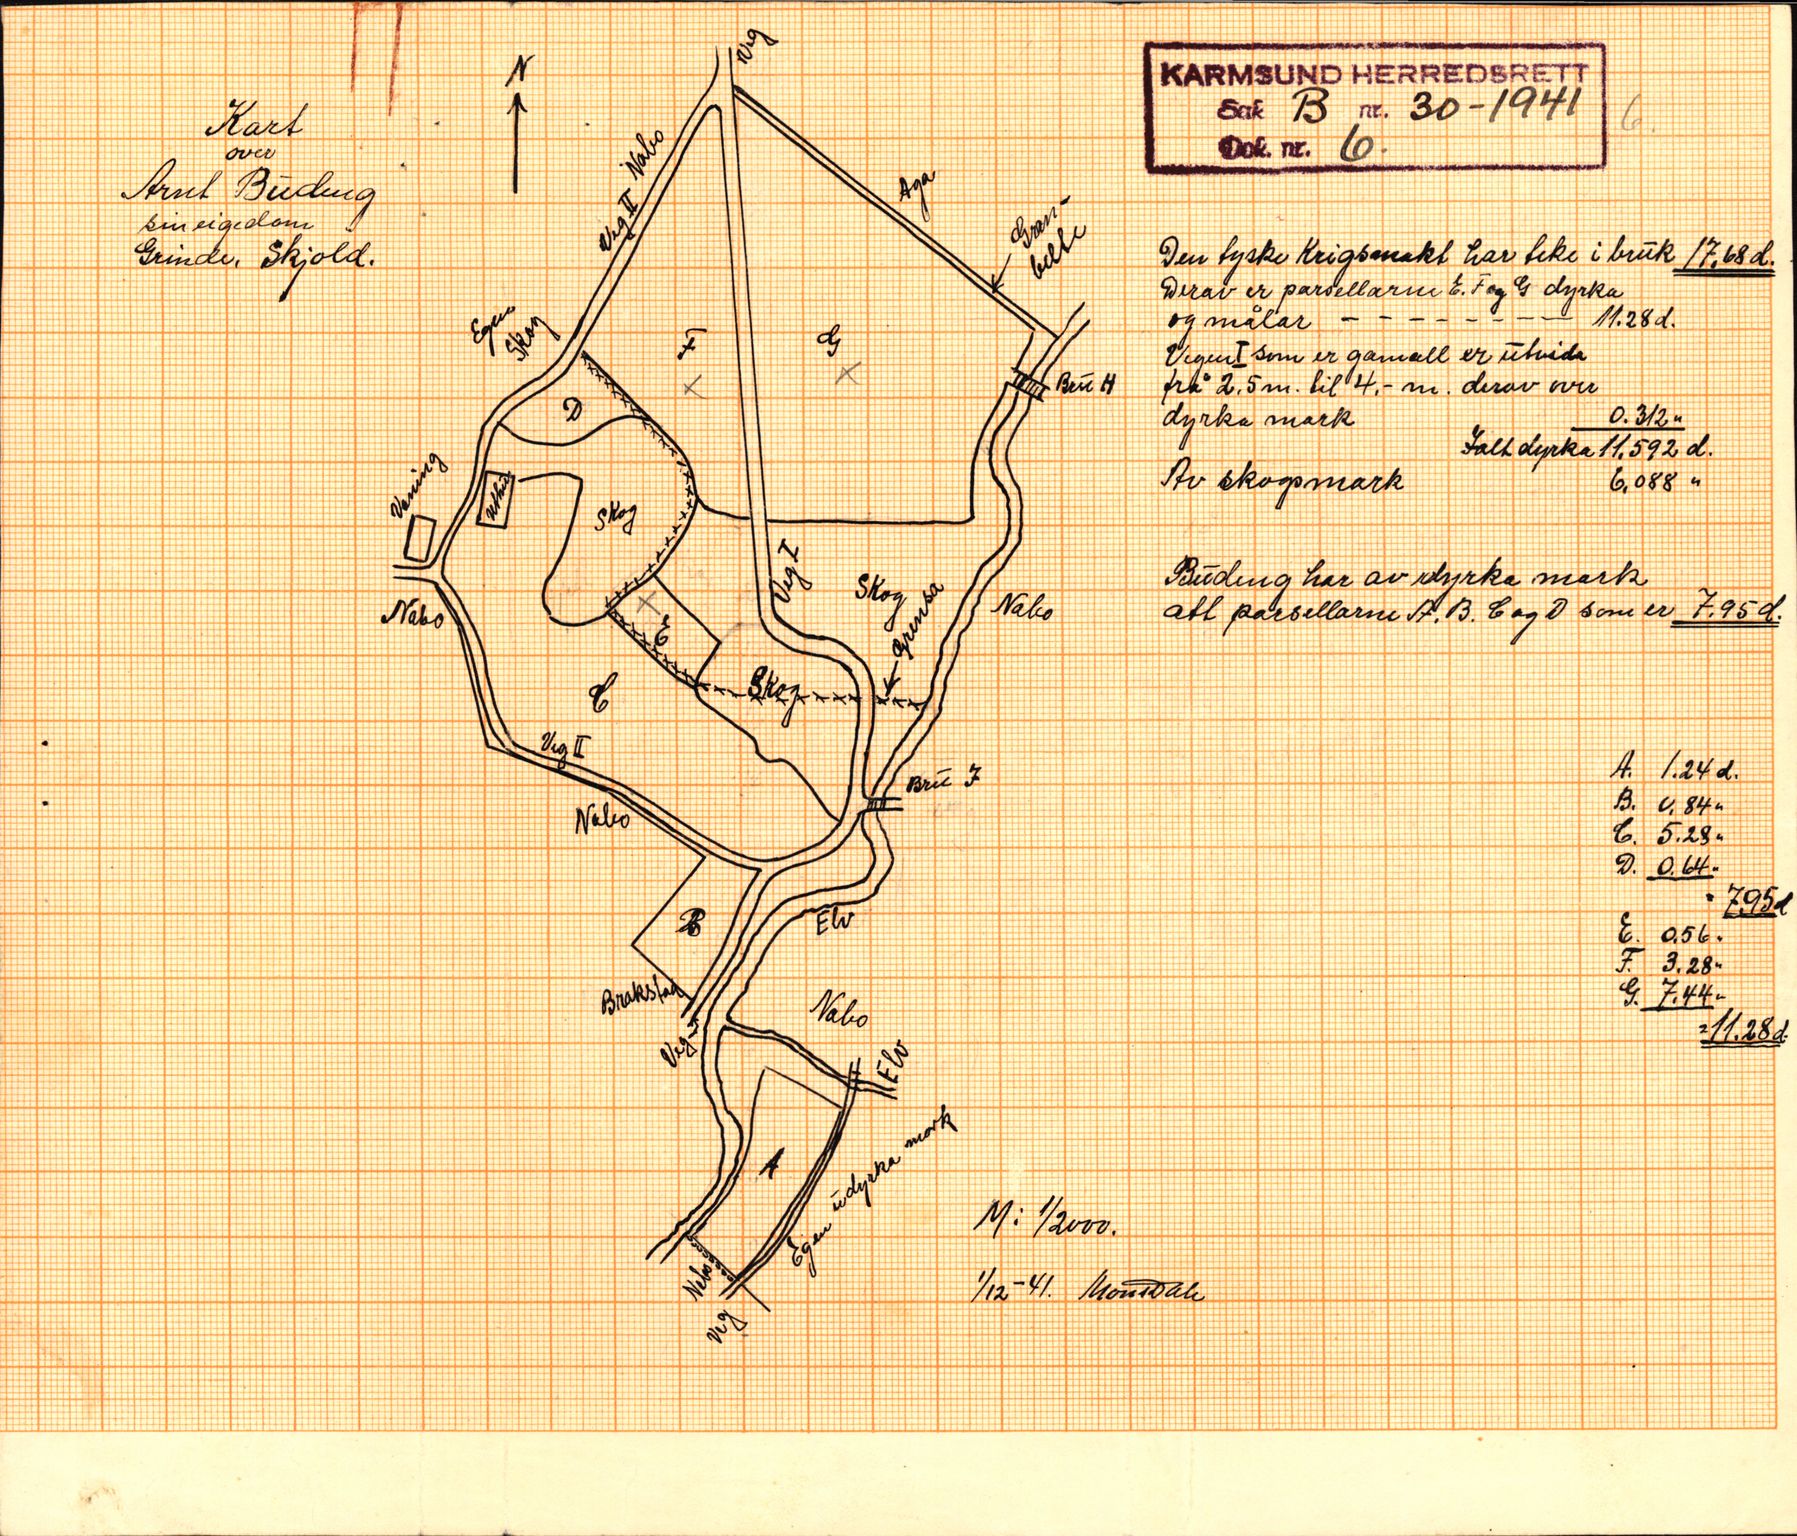 Kart
over
Arnt Büding
sin eigedom
Grinde, Skjold.
N
KARMSUND HERREDSRETT
Sak B nr. 30-1941
Dok. nr. 6.
6.
Den tyske Krigsmakt har teke i bruk 17,68 d.
Derav er parsellarne E. F og G dyrka
og målar - - - - - - - - 11.28 d.
Vegen I som er gamall er ütvida
frå 2,5 m. til 4,- m. derav over
dyrka mark 0.312 "
Ialt dyrka 11,592 d.
Av skogsmark 6,088 "
Büding har av dyrka mark
att parsellarne A. B. C og D som er 7.95 d.
A. 1.24 d.
B. 0,84 "
C. 5.23 "
D. 0.64 "
= 7.95 d
E. 0.56 "
F. 3.28 "
G. 7.44 "
= 11.28 d.
Veg
Nabo
Veg II
Aga
Gran-
belte
Egen
Skog
F
G
Brü H
D
Vaning
Skog
Veg I
Skog
Grensa
Nabo
Nabo
E
Skog
C
Veg II
Brü I
Nabo
B
Elv
Brakstad
Veg
Nabo
Elv
A
Egen üdyrka mark
Nabo
Veg
M: 1/2000.
1/12-41.